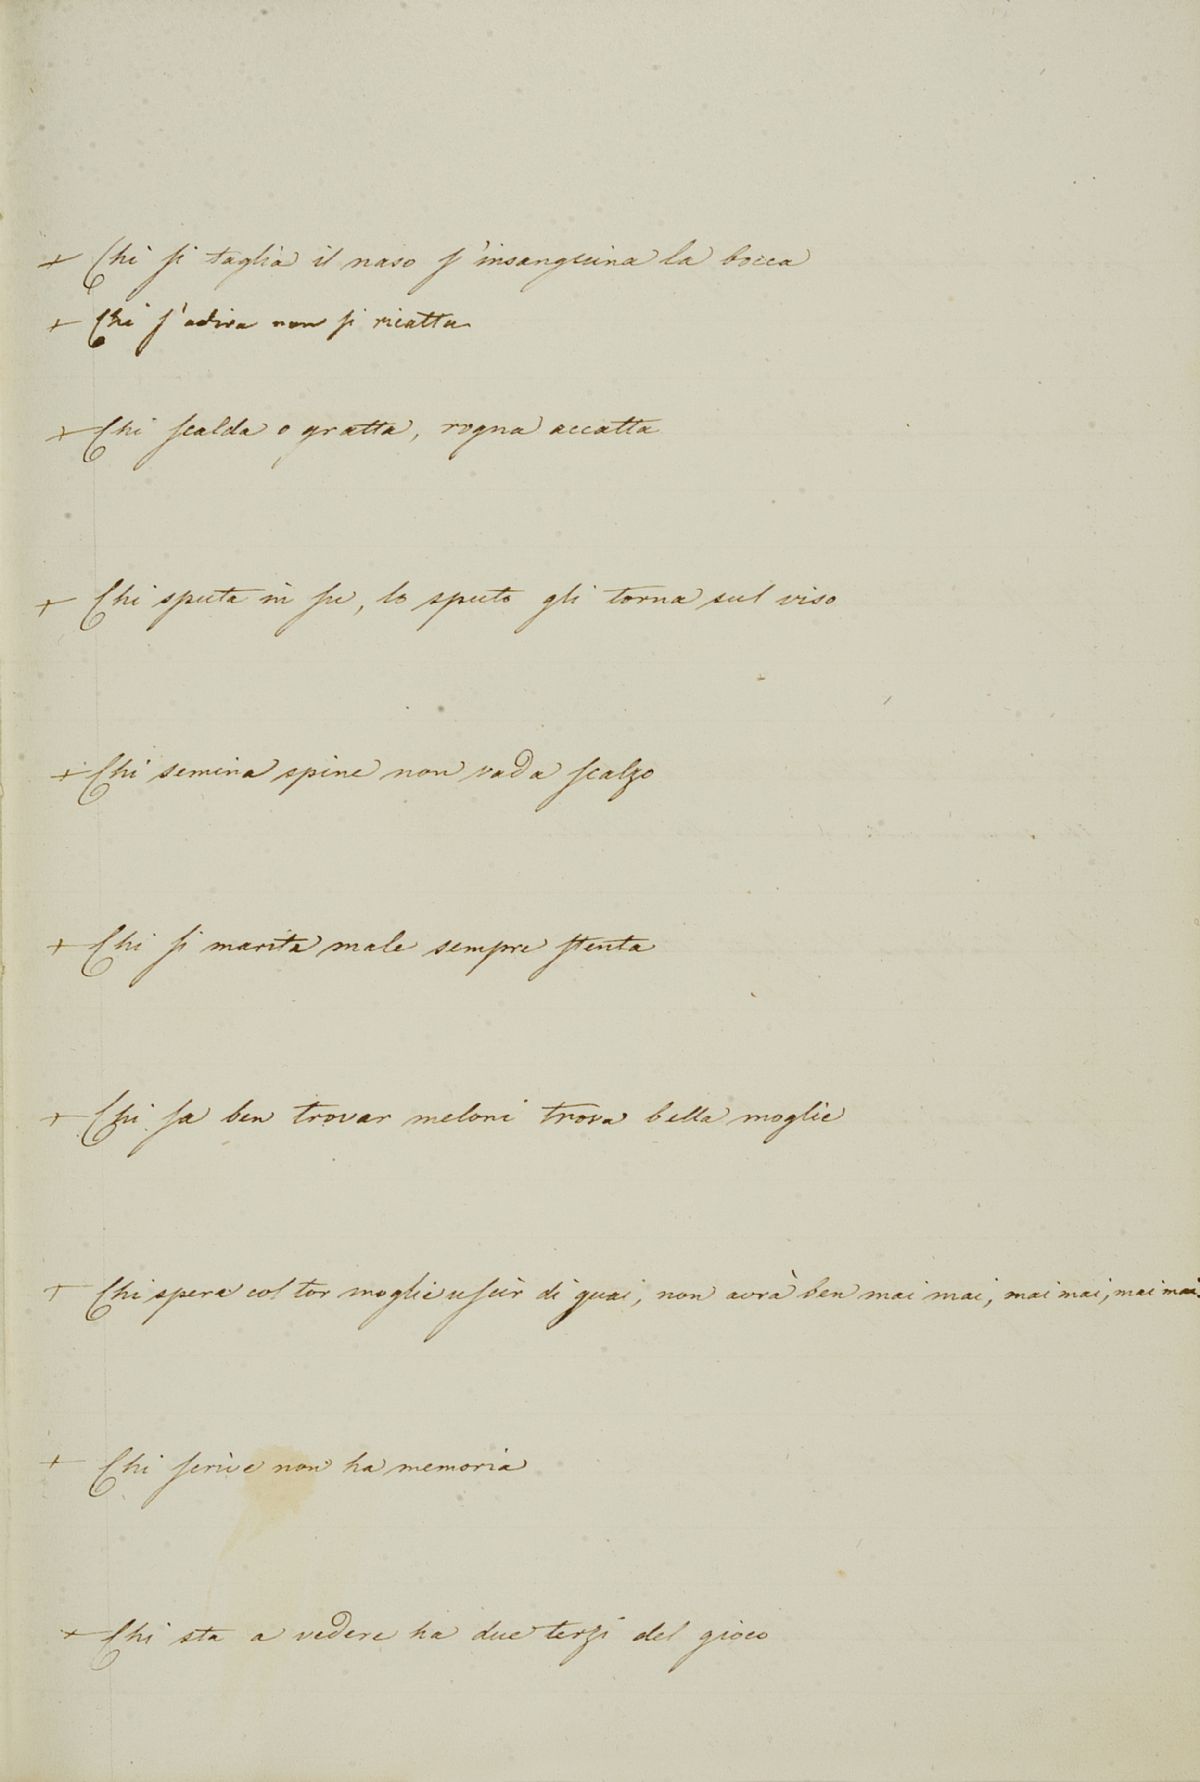 + Chi si taglia il naso s'insanguina la bocca
+ Chi s'adira non si ricatta
+ Chi scalda o gratta, rogna accatta
+ Chi sputa in su, lo sputo gli torna sul viso
+ Chi semina spine non vada scalzo
+ Chi si marita male sempre stenta
+ Chi sa ben trovar meloni trova bella moglie
+ Chi spera col tor moglie uscir di guai, non avrà ben mai mai, mai mai, mai mai.
+ Chi scrive non ha memoria
+ Chi sta a vedere ha due terzi del gioco